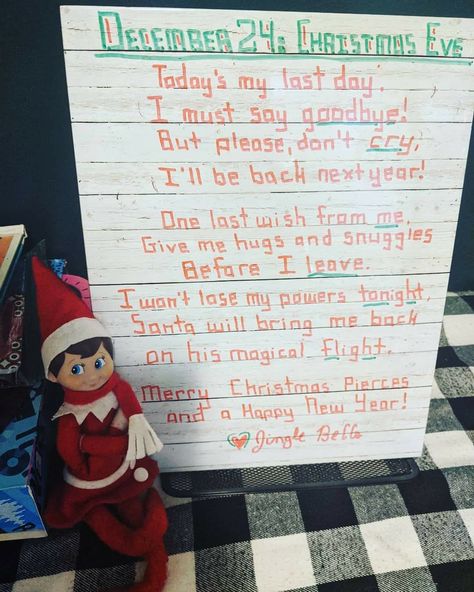 December 24: Christmas Eve
Today's my last day.
I must say goodbye!
But please, don't cry,
I'll be back next year!
One last wish from me,
Give me hugs and snuggles
Before I leave.
I won't lose my powers tonight,
Santa will bring me back
on his magical flight.
Merry Christmas Pierces
and a Happy New Year!
Jingle Bells